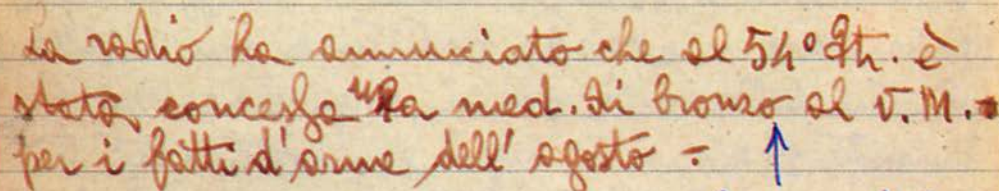 La radio ha annunciato che al 54° Ftr. è
stata concessa una med. di bronzo al V.M.
per i fatti d'arme dell' agosto -